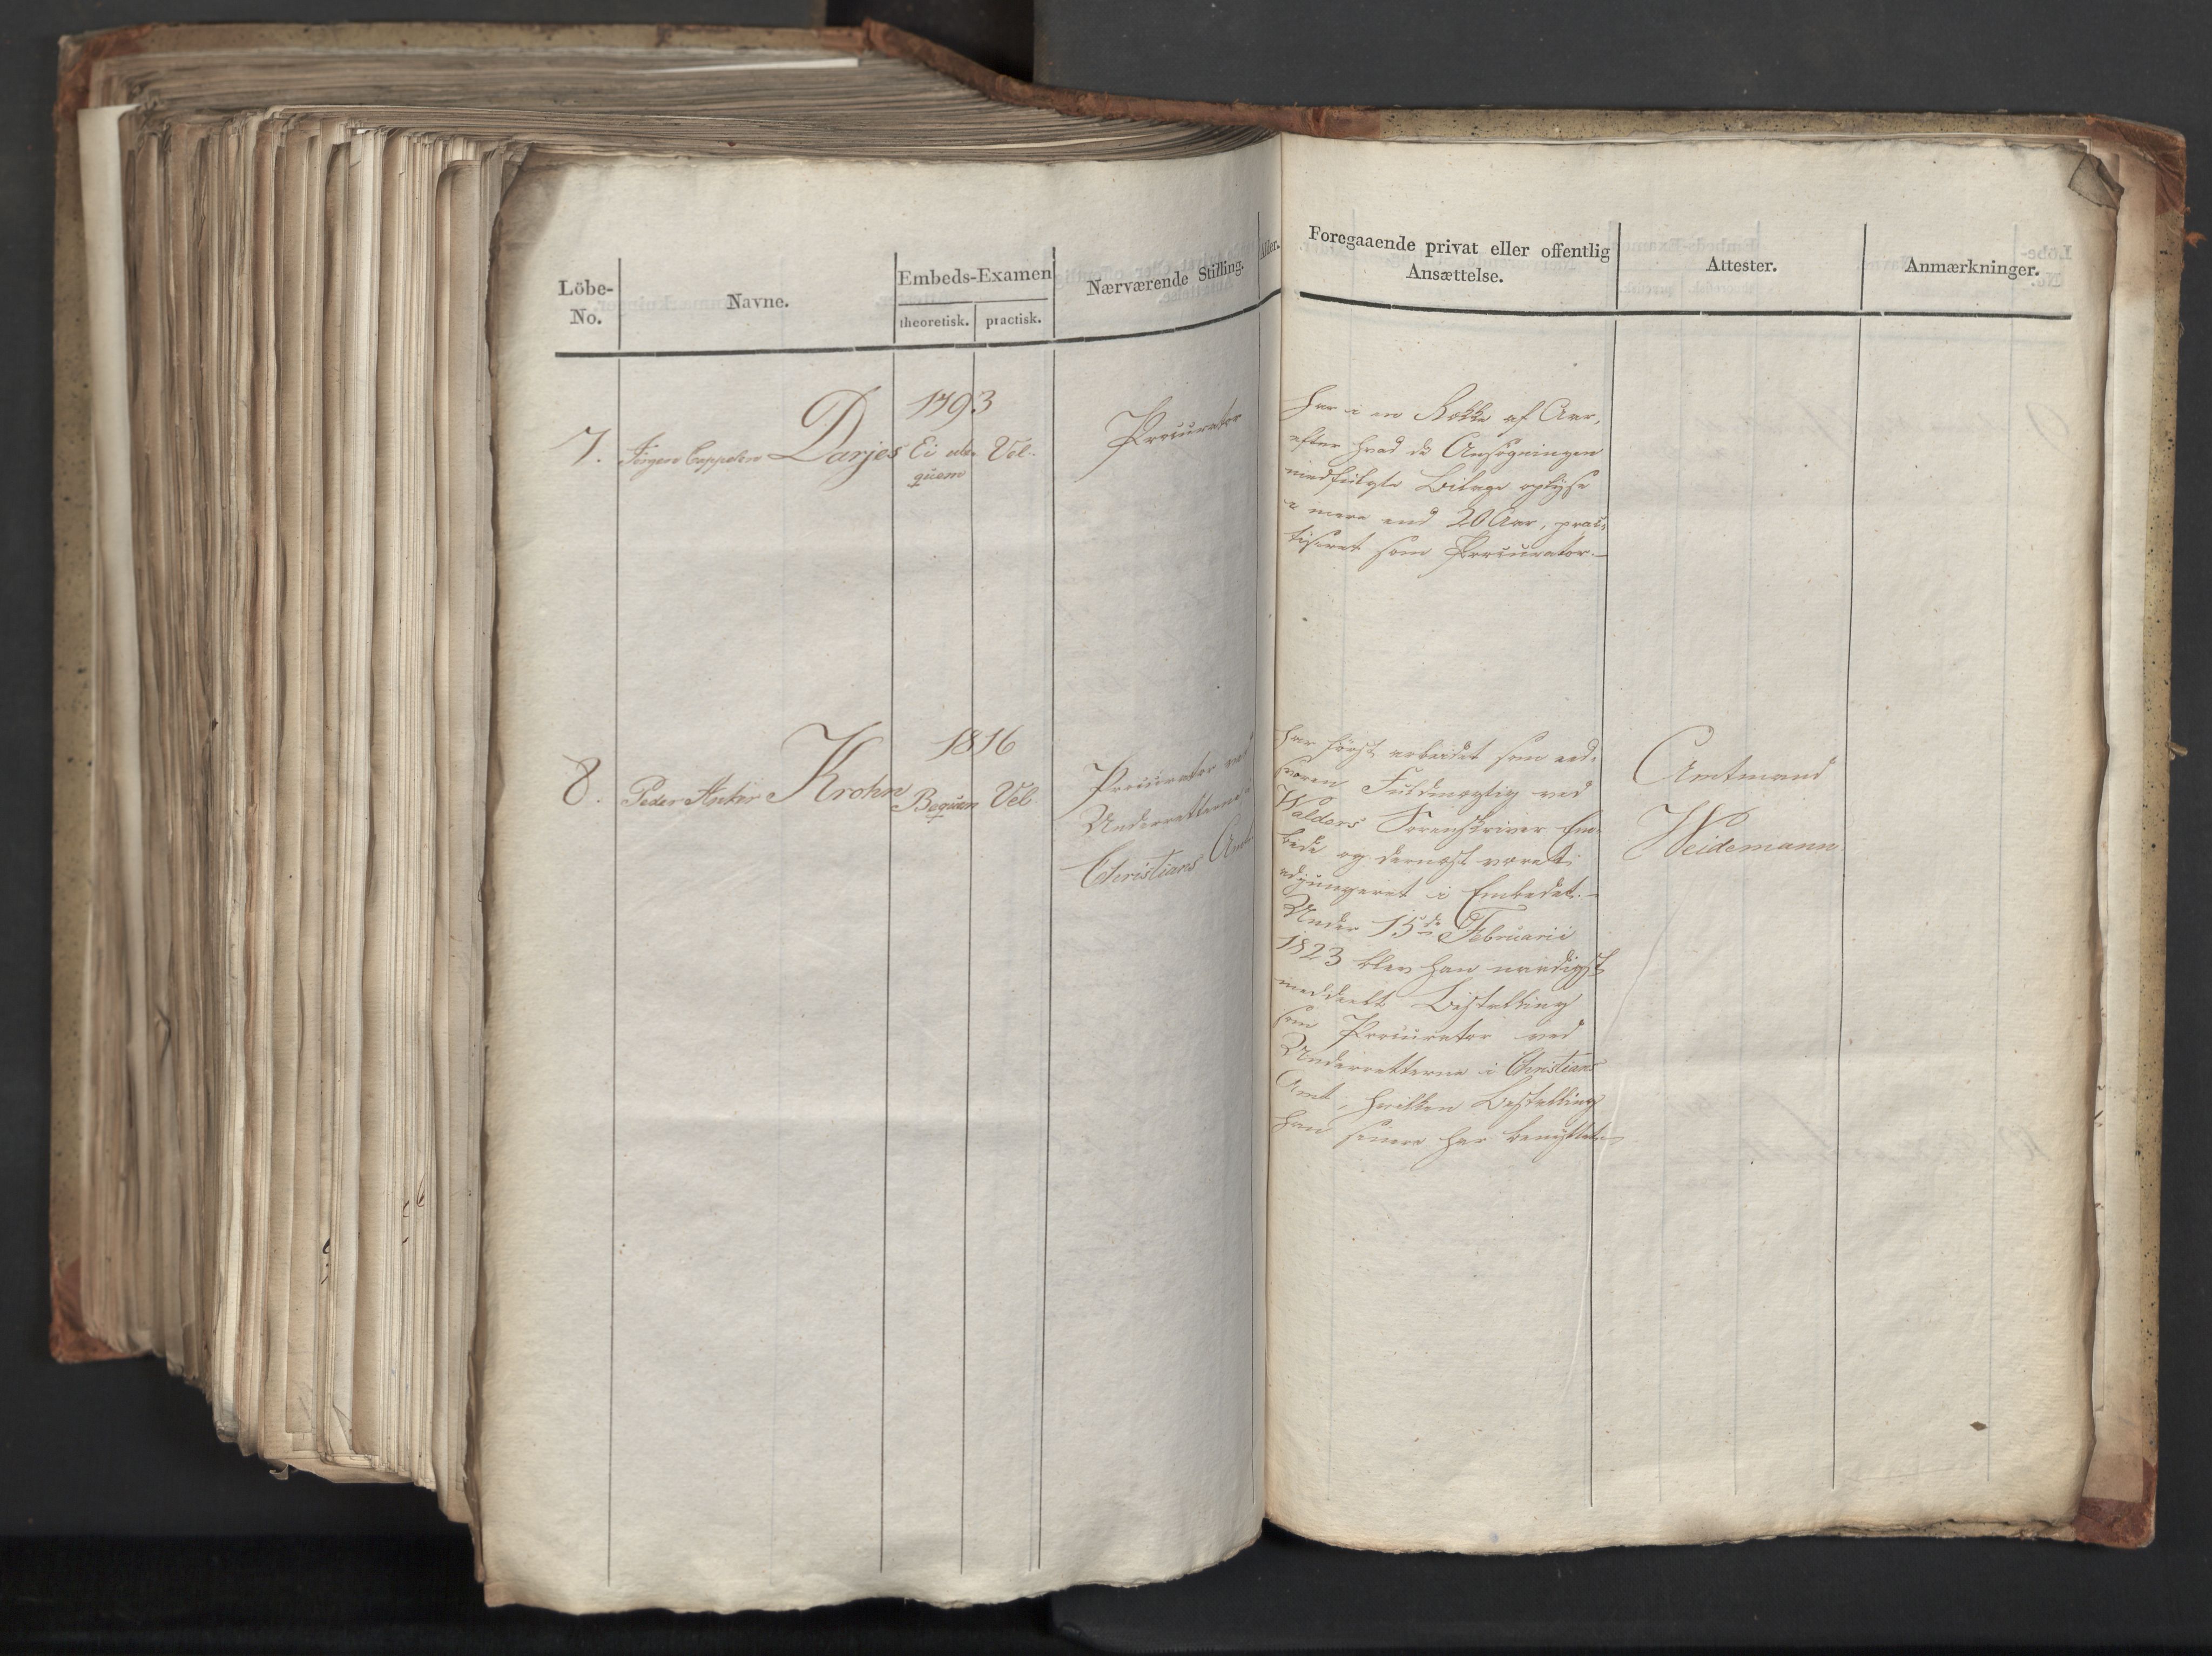 Löbe-
No.
Navne.
Embeds-Examen
theoretisk.
practisk.
Nærværende Stilling.
Alder.
Foregaaende privat eller offentlig
Ansættelse.
Attester.
Anmærkninger.
7.
Jørgen Cappelen Darjes
1793
Ei ube-
quem
Vel.
Procurator
Har i en Række af Aar,
efter hvad de Ansøgningen
medfulgte Bilage oplyse
i mere end 20 Aar, prac-
tiseret som Procurator.
8.
Peder Anker Krohn
1816
Bequem
Vel
Procurator ved
Underretterne i
Christians Amt
Har først arbeidet som eed-
svoren Fuldmægtig ved
Walders Sorenskriver Em-
bede og dernæst været
adjungeret i Embedet.
Under 15de Februarii
1823 blev han naadigst
meddeelt Bestalling
som Procurator ved
Underretterne i Christians
Amt, hvilken Bestalling
han senere har benyttet
Amtmand
Weidemann